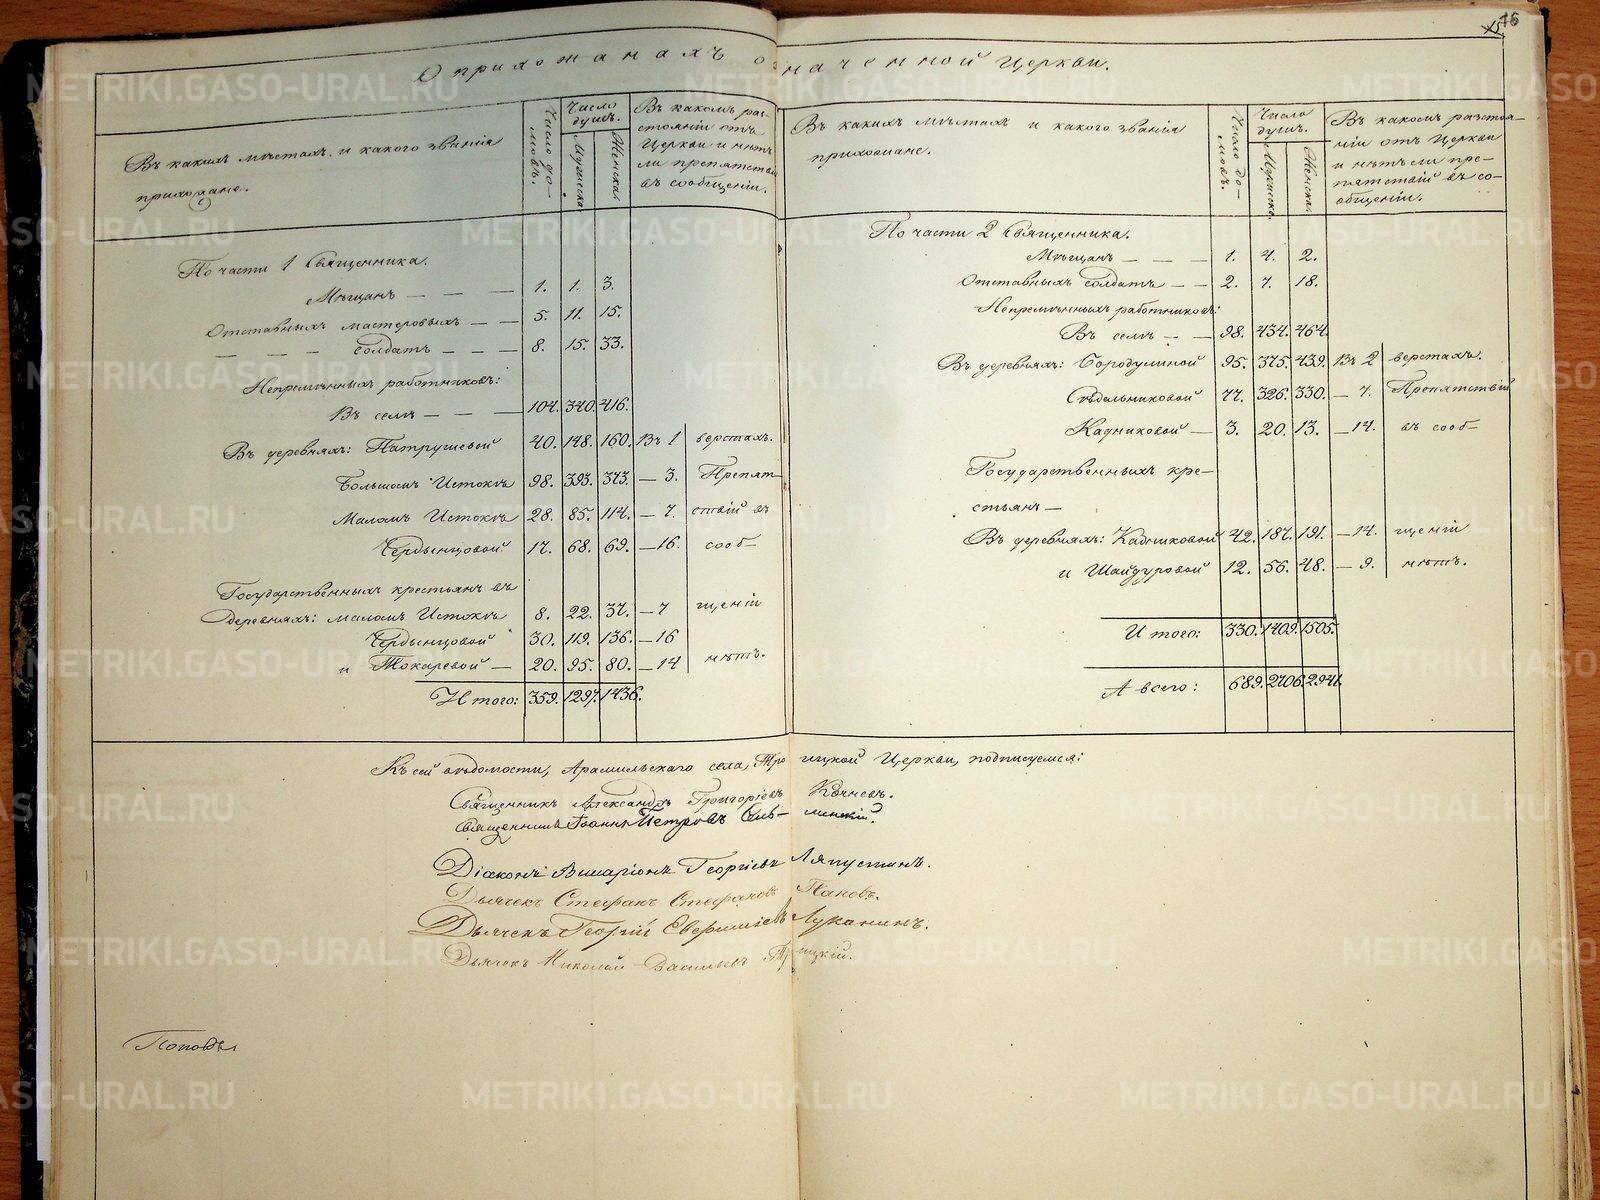 16
О прихожанахъ означенной Церкви.
Въ какихъ мѣстахъ и какого званія
прихожане.
Число домовъ.
Число душъ.
Мужска.
Женска.
Въ какомъ раз-
стояніи отъ
Церкви и нѣтъ
ли препятствій
въ сообщеніи.
По части 1 Священника.
Мѣщанъ — — — 1. 1. 3.
Отставныхъ мастеровыхъ — — 5. 11. 15.
— — — солдатъ — — 8. 15. 33.
Непремѣнныхъ работниковъ:
Въ селѣ — — — 104. 340. 416.
Въ деревняхъ: Патрушевой 40. 148. 160. Въ 1 верстахъ.
Большомъ Истокѣ 98. 393. 373. — 3. Препят-
Маломъ Истокѣ 28. 85. 114. — 7. ствій въ
Чердынцовой 17. 68. 69. — 16. сооб-
Государственныхъ крестьянъ въ
деревняхъ: маломъ Истокѣ 8. 22. 37. — 7 щеніи
Чердынцовой 30. 119. 136. — 16
и Токаревой — 20. 95. 80. — 14 нѣтъ.
Итого: 359. 1297. 1436.
Въ какихъ мѣстахъ и какого званія
прихожане.
Число домовъ.
Число душъ.
Мужска.
Женска.
Въ какомъ разстоя-
ніи отъ Церкви
и нѣтъ ли пре-
пятствій въ со-
общеніи.
По части 2 Священника.
Мѣщанъ — — — 1. 4. 2.
Отставныхъ солдатъ — — 2. 7. 18.
Непремѣнныхъ работниковъ:
Въ селѣ — — 98. 434. 464.
Въ деревняхъ: Бородулиной 95. 375. 439. Въ 2 верстахъ.
Сѣдельниковой 77. 326. 330. — 7. Препятствій
Кадниковой — 3. 20. 13. — 14. въ сооб-
Государственныхъ кре-
стьянъ —
Въ деревняхъ: Кадниковой 42. 187. 191. — 14. щеніи
и Шайдуровой 12. 56. 48. — 9. нѣтъ.
Итого: 330. 1409. 1505.
А всего: 689. 2706. 2941.
Къ сей вѣдомости, Арамильскаго села, Троицкой Церкви, подписуемся:
Священникъ Александръ Григорьевъ
Священникъ Іоаннъ Петровъ
Діаконъ Виссаріонъ Георгіевъ Ляпустинъ.
Дьячекъ Стефанъ Стефановъ Пановъ.
Дьячекъ Георгій Луканинъ.
Дьячекъ Николай Васильевъ Троицкій.
Поповъ
METRIKI.GASO-URAL.RU